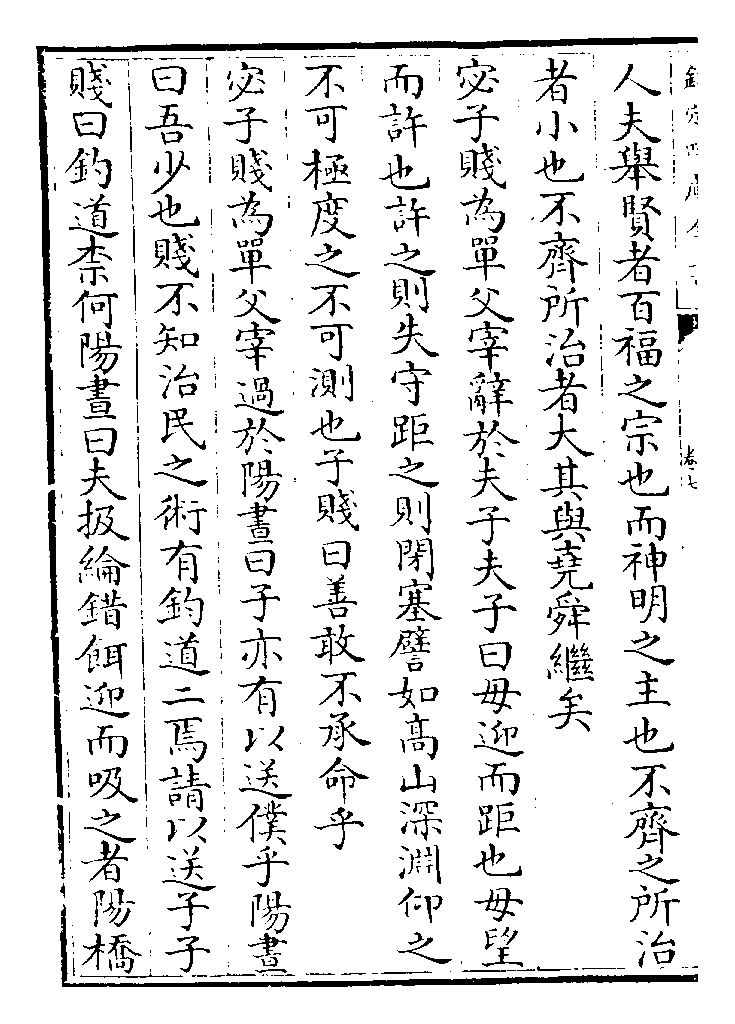 欽定四庫全書
卷七
人夫舉賢者百福之宗也而神明之主也不齊之所治
者小也不齊所治者大其與堯舜繼矣
宓子賤為單父宰辭於夫子夫子曰毋迎而距也毋望
而許也許之則失守距之則閉塞譬如髙山深淵仰之
不可極度之不可測也子賤曰善敢不承命乎
宓子賤為單父宰過於陽晝曰子亦有以送僕乎陽晝
曰吾少也賤不知治民之術有釣道二焉請以送子子
賤曰釣道柰何陽晝曰夫扱綸錯餌迎而吸之者陽橋